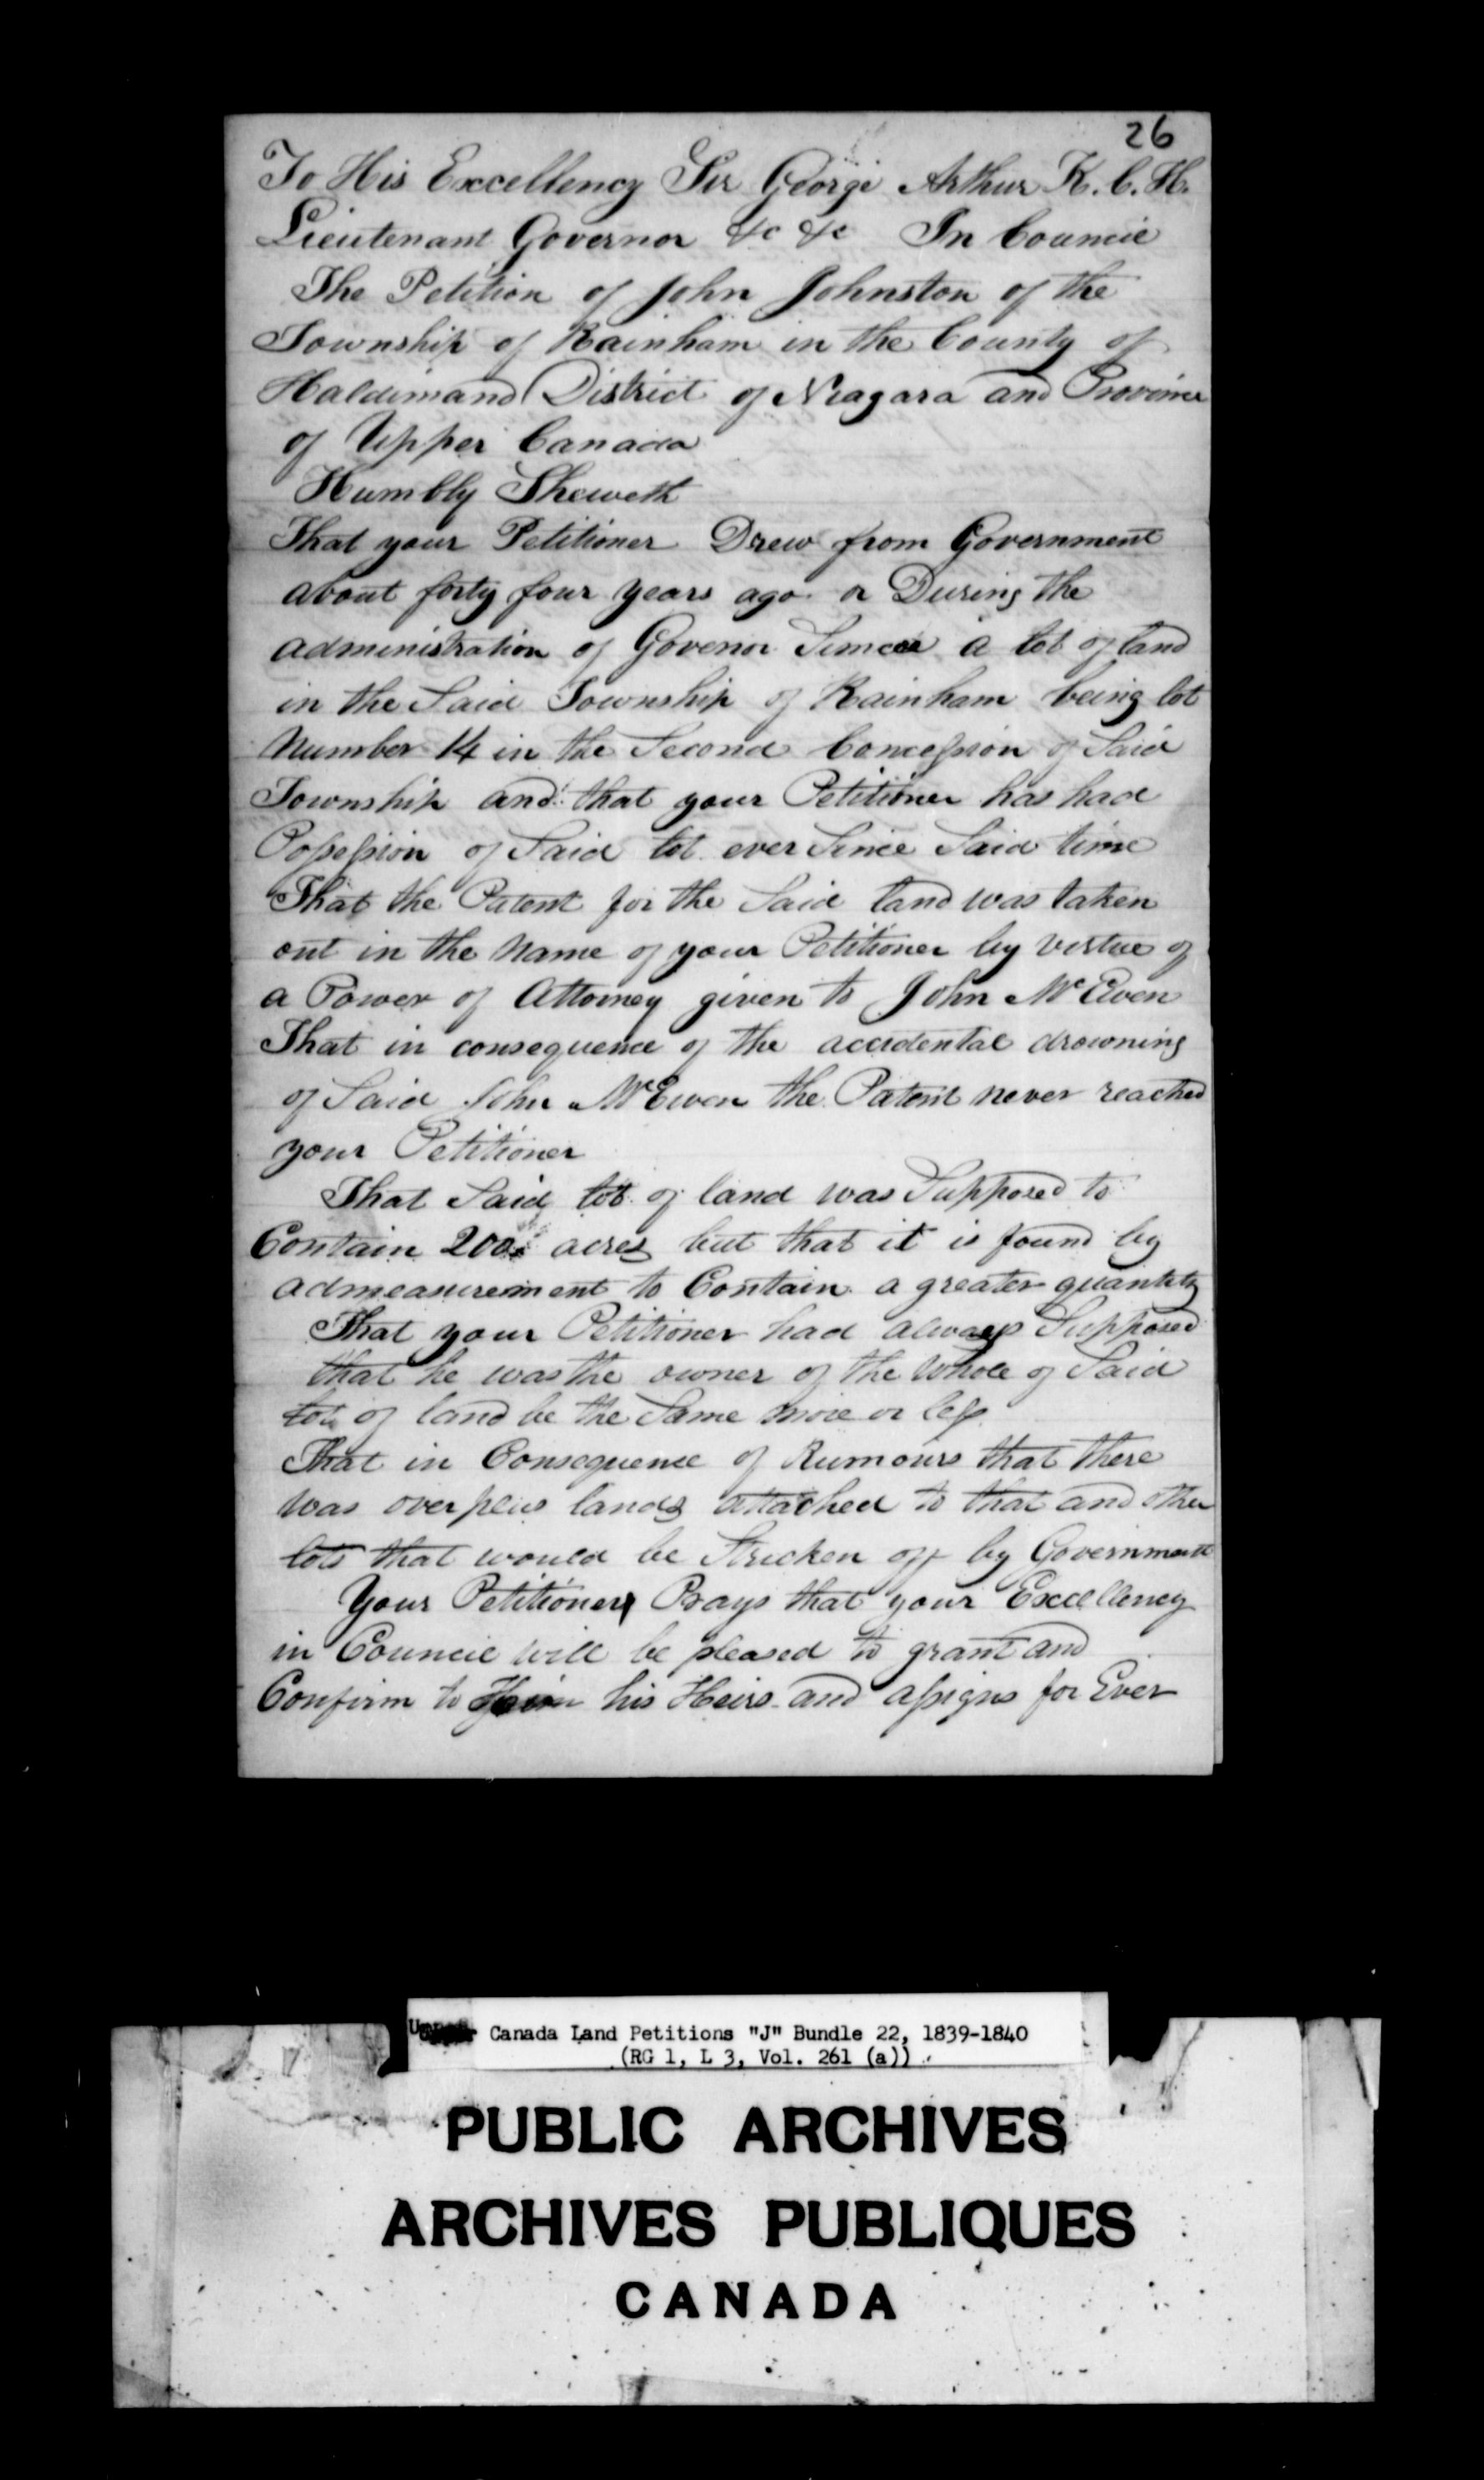 26
To His Excellency Sir George Arthur K. C. H.
Lieutenant Governor &c &c In Council
The Petition of John Johnston of the
Township of Rainham in the County of
Haldimand District of Niagara and Province
of Upper Canada
Humbly Sheweth
That your Petitioner Drew from Government
about forty four years ago or During the
administration of Govenor Simcoe a lot of land
in the Said Township of Rainham being lot
Number 14 in the Second Concession of Said
Township and that your Petitioner has had
Possession of Said lot ever Since Said time
That the Patent for the Said land was taken
out in the Name of your Petitioner by Vertue of
a Power of Attorney given to John McEwen
That in consequence of the accidental drowning
of Said John McEwen the Patent never reached
your Petitioner
That Said lot of land was Supposed to
Contain 200 acres but that it is found by
admeasurement to Contain a greater quantity
That your Petitioner had always Supposed
that he was the owner of the Whole of Said
lot of land be the Same more or less
That in Consequence of Rumours that there
was overplus lands attached to that and other
lots that would be Stricken off by Government
Your Petitioner Prays that your Excellency
in Council will be pleased to grant and
Confirm to Him his Heirs and assigns for Ever
Canada Land Petitions "J" Bundle 22, 1839-1840
(RG 1, L 3, Vol. 261 (a))
PUBLIC ARCHIVES
ARCHIVES PUBLIQUES
CANADA